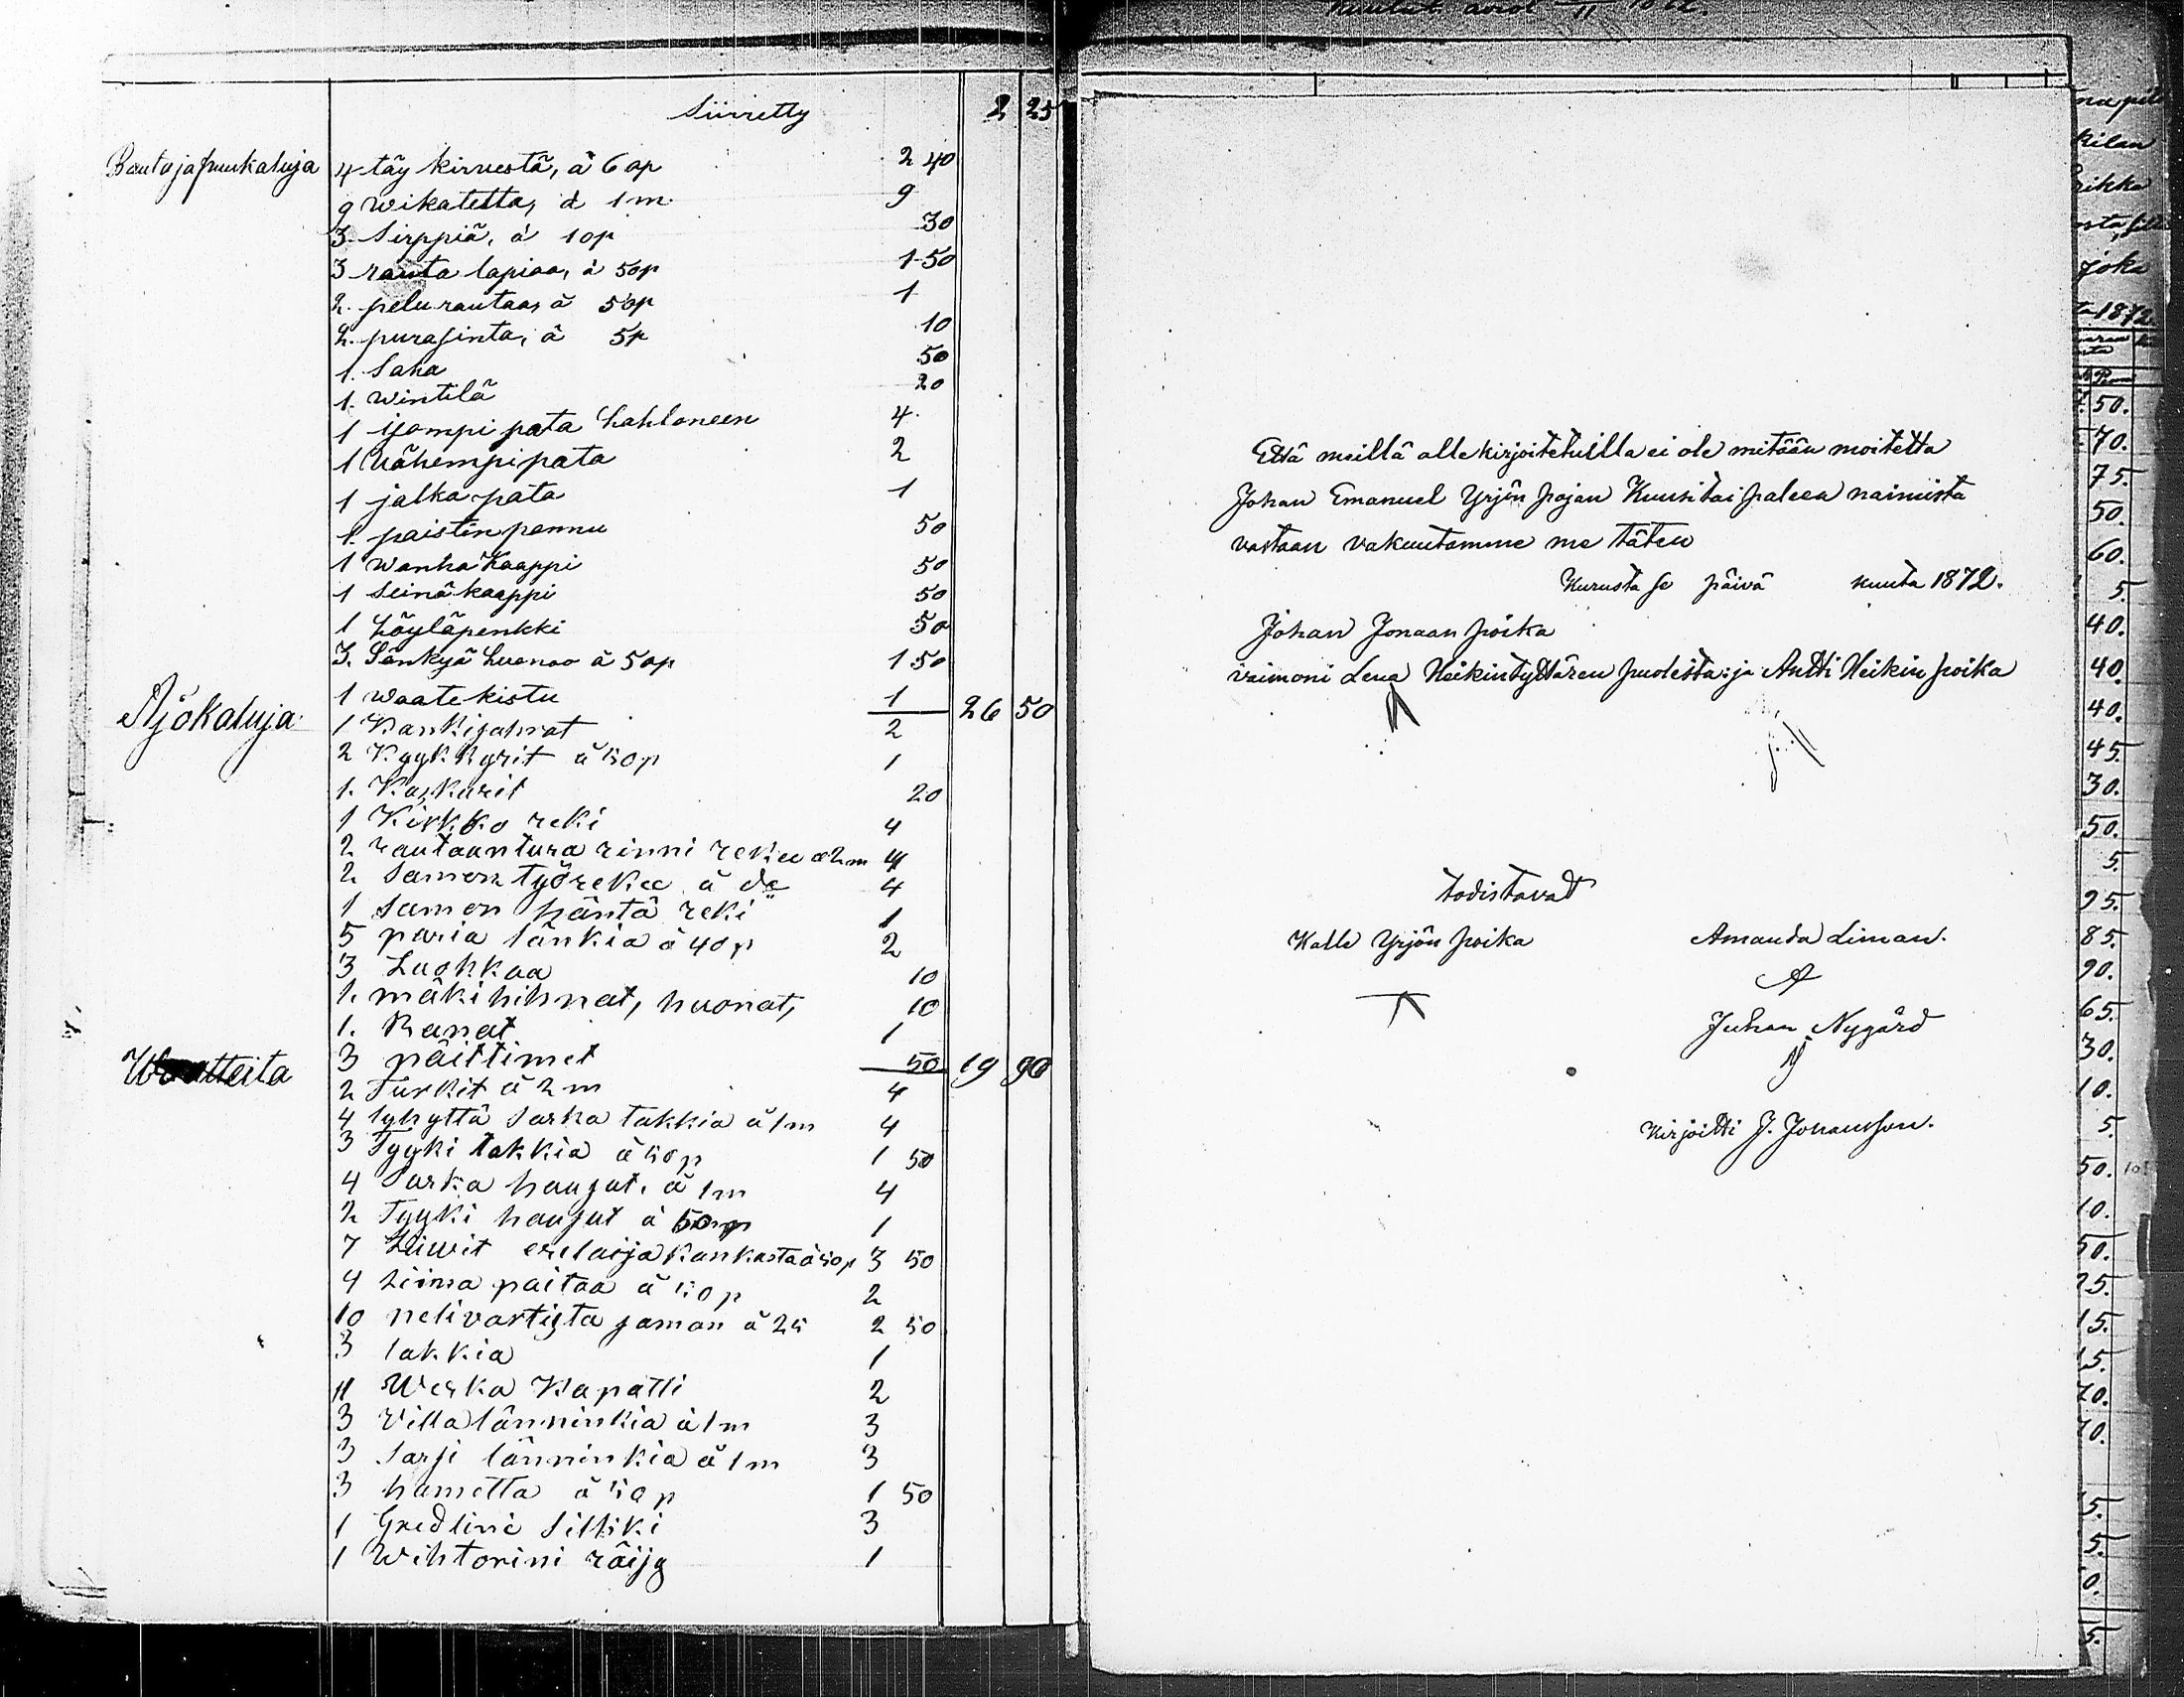 Siirretty 2 25
Rauta ja puukaluja 4 täy kirvestä, à 60p 2 40
9 wikatetta, à 1m 9
3 Sirppiä, à 10p 30
3 rauta lapiaa, à 50p 1 50
2. pelu rautaa, à 50p 1
2. purasinta, à 5p 10
1. Saha 50
1. wintilä 20
1 isompi pata hahloneen 4
1 vähempi pata 2
1 jalka pata 1
1. paistin pannu 50
1 wanha kaappi 50
1 Seinä kaappi 50
1 höyläpenkki 50
3. Sänkyä huonoo à 50p 1 50
1 waate kistu 1 26 50
Ajökaluja 1 Kankijahrat 2
2 Kyykkyrit à 50p 1
1. Kaskarit 20
1 Kirkko reki 4
2 rautaantura rinni rekee à 2m 4
2 Samon työrekee à do 4
1 Samon häntä reki 1
5 paria länkia à 40p 2
3 Luohkaa 10
1. mäkihihnat, huonat, 10
1. Ranat 1
3 päittimet 50 19 90
Waatteita 2 Turkit à 2m 4
4 lyhyttä Sarka takkia à 1m 4
3 Tyyki takkia à 50p 1 50
4 Sarka housut. à 1m 4
2 Tyyki housut à 50p 1
7 Liiwit erelaisja kankasta à 50p 3 50
4 Liina paitaa à 50p 2
10 nelivartista saman à 25 2 50
3 lakkia 1
1 Werka Kapatti 2
3 Villa länninkia à 1m 3
3 Sarsi länninkia à 1m 3
3 hametta à 50p 1 50
1 Gredlini Silkki 3
1 Wihtorini röijy 1
Että meillä allekirjoitetuilla ei ole mitään moitetta
Johan Emanuel Yrjön pojan Kuusitaipaleen naimista
vastaan vakuutamme me täten
Kurusta se päivä kuuta 1872.
Johan Jonaan poika
vaimoni Lena Heikintyttären puolesta: ja Antti Heikin poika
todistavat
Kalle Yrjön poika Amanda Liman.
A
Juhan Nygård
Kirjoitti J. Johansson.
na pii
kilan
rikka
joka
1872
50.
70.
75.
50.
60.
5.
40.
40.
40.
45.
30.
50.
5.
95.
85.
90.
65.
30.
10.
5.
50.
10.
50.
25.
15.
15.
70.
70.
5.
5.
0.
5.